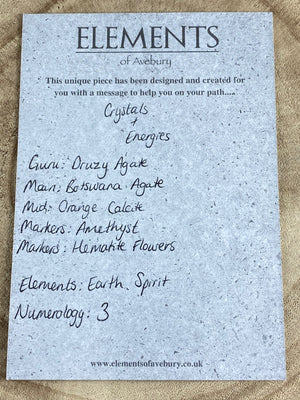 ELEMENTS
of Avebury
This unique piece has been designed and created for
you with a message to help you on your path....
Crystals
+
Energies
Guru: Druzy Agate
Main: Botswana Agate
Mid: Orange Calcite
Markers: Amethyst
Markers: Hematite Flowers
Elements: Earth, Spirit
Numerology: 3
www.elementsofavebury.co.uk